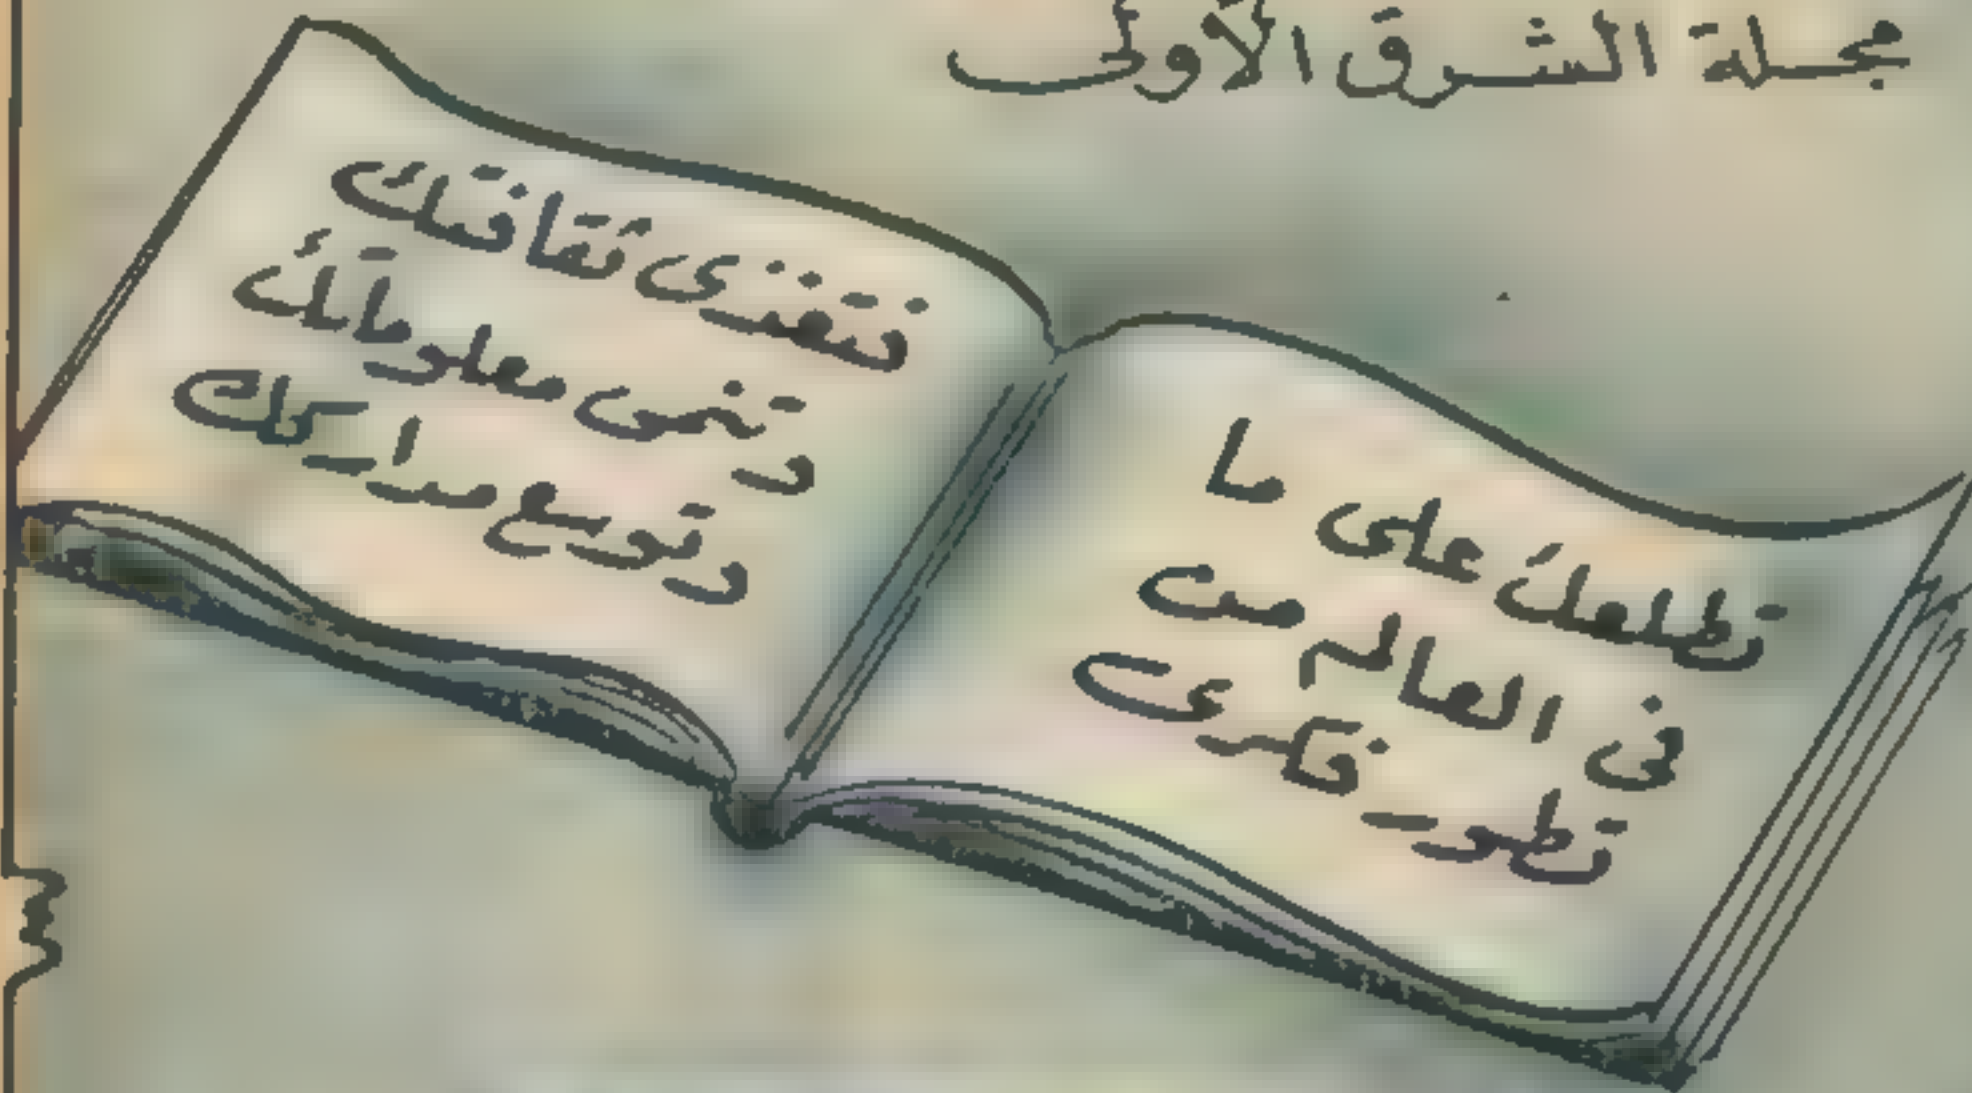 مجلة الشرق الأولى
تطلعك على ما
فى العالم من
تطور فكرى
فتغذى ثقافتك
وتنمى معلوماتك
وتوسع مداركك